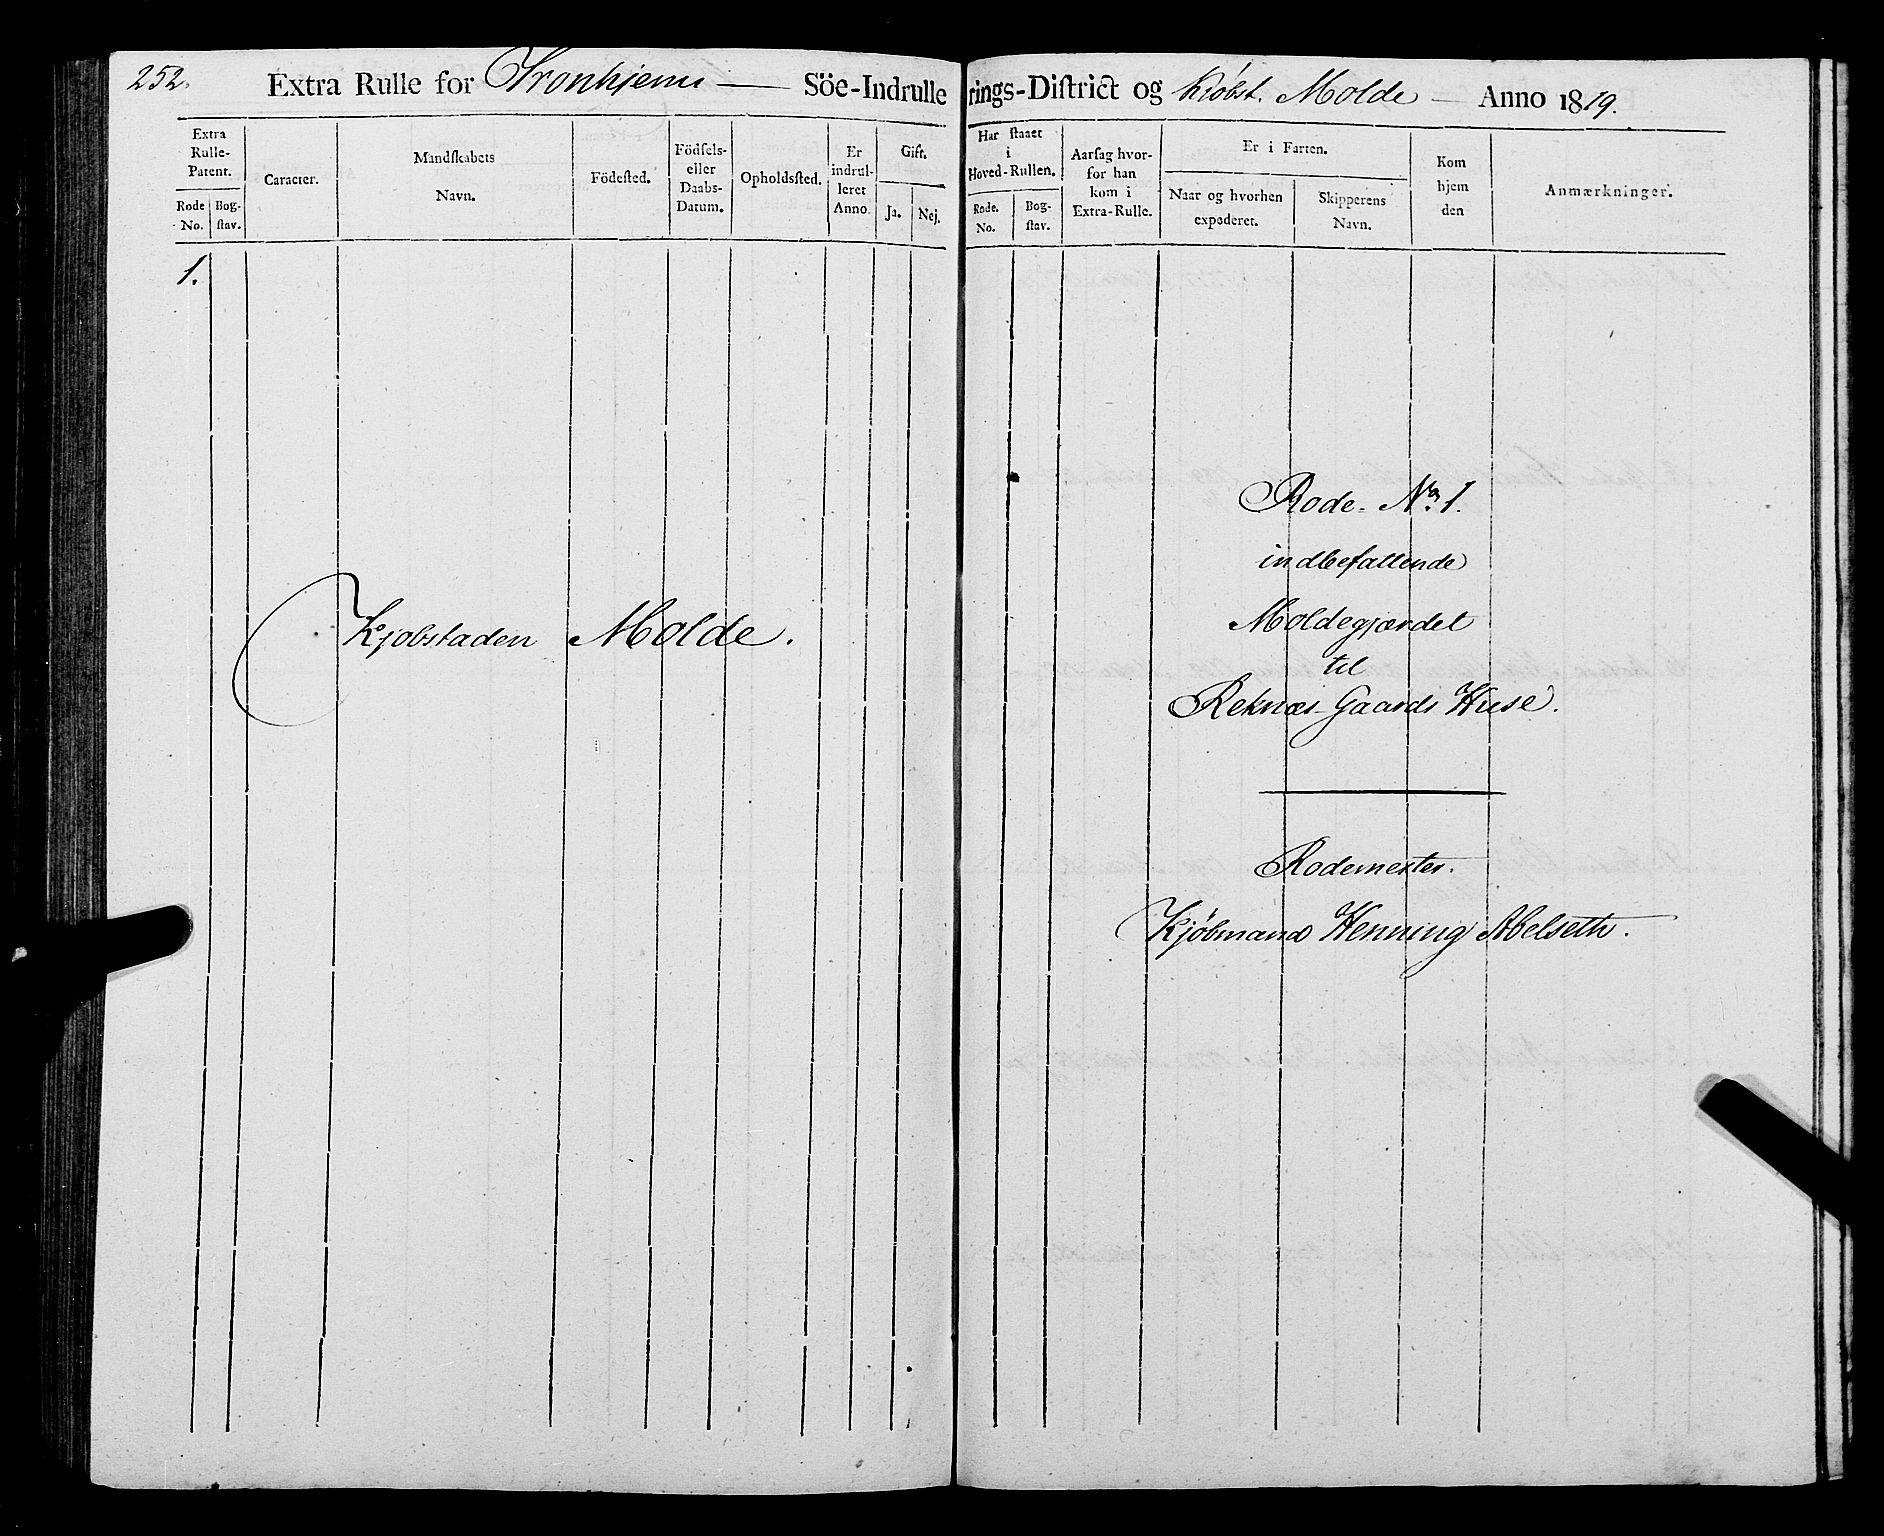 252.
Extra Rulle for Tronhjems — Söe-Indrullerings-District og Kiøbst. Molde — Anno 1819.
Extra Rulle-Patent.
Rode No.
Bog-stav.
Caracter.
Mandskabets Navn.
Födested.
Födsels- eller Daabs-Datum.
Opholdssted.
Er indrul-leret Anno.
Gift.
Ja.
Nej.
Har staaet i Hoved-Rullen.
Rode. No.
Bog-stav.
Aarsag hvor-for han kom i Extra-Rulle.
Er i Farten.
Naar og hvorhen expederet.
Skipperens Navn.
Kom hjem den
Anmærkninger.
1.
Kjobstaden Molde.
Rode No. 1.
indbefattende
Moldegjærdet
til
Reknæs-Gaards Huse.
Rodemester.
Kjøbmand Henning Abelseth.